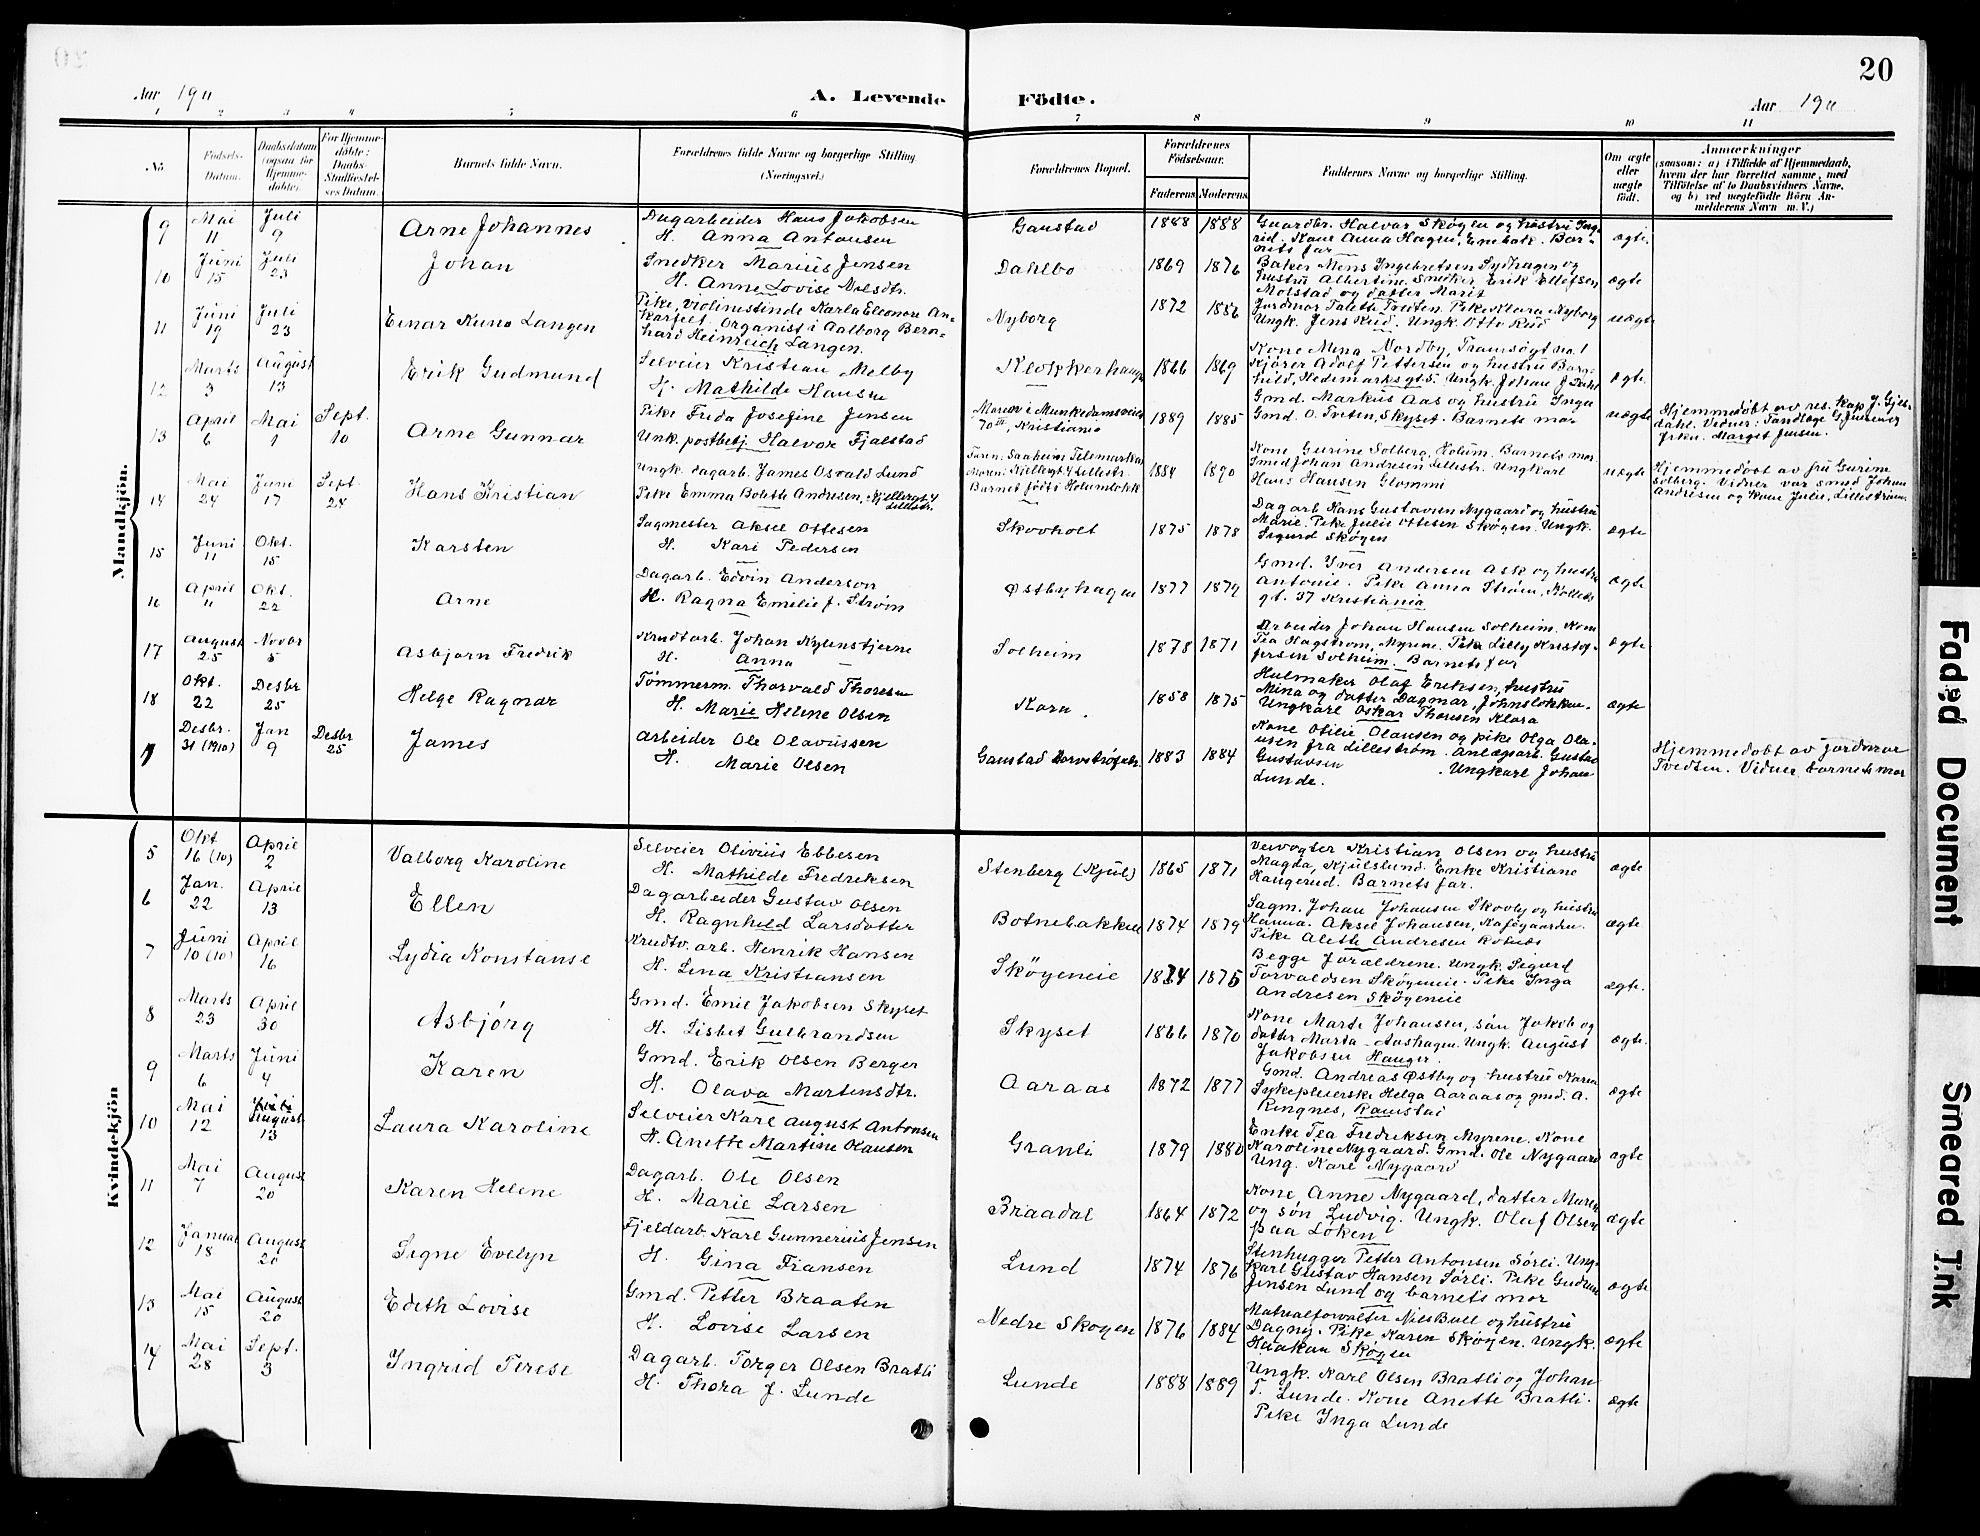 20
Aar 1911 A. Levende Födte. Aar 1911
1 2 3 4 5 6 7 8 9 10 11
No Födsels-Datum. Daabsdatum (ogsaa for Hjemmedöbte). For Hjemmedöbte: Daabs-Stadfæstelses Datum. Barnets fulde Navn. Forældrenes fulde Navne og borgerlige Stilling (Næringsvei.) Forældrenes Bopæl. Forældrenes Födselsaar. Faderens Moderens Faddernes Navne og borgerlige Stilling. Om ægte eller uægte födt. Anmærkninger
(saasom: a) i Tilfælde af Hjemmedaab, hvem der har forrettet samme, med Tilföielse af to Daabsvidners Navne, og b) ved uægtefödte Börn Anmelderens Navn m. V.)
Mandkjön.
9 Mai 11 Juli 9 Arne Johannes Dagarbeider Hans Jakobsen H. Anna Antonsen Gaustad 1888 1888 Gaardbr. Halvor Skøgen og hustru Ingrid. Kone Anna Hagen, Enebak. Barnets far ægte.
10 Juni 15 Juli 23 Johan Snedker Marius Jensen H. Anne Lovise Nilsdtr. Dahlbo 1869 1876 Baker Mens Ingebretsen Sydhagen og hustru Albertine. Snedker Erik Ellefsen Molstad og datter Marit ægte
11 Juni 19 Juli 23 Einar Kuno Langen Pike, violinistinde Karla Eleonora Ankarfelt. Organist i Aalborg Bernhard Heinreich Langen. Nyborg 1872 1886 Jordmor Talette Tvedten. Pike Klara Nyborg Ungk. Jens Rud. Ungk. Otto Rud uægte
12 Marts 3 August 13 Erik Gudmund Selveier Kristian Melby H. Mathilde Hansen Klokkerhaugen 1866 1869 Kone Mina Nordby, Tramsøgt no. 1 Kjører Adolf Pettersen og hustru Borghild, Hedemarksgt 5. Ungk. Johan J. ægte.
13 April 6 Mai 1 Sept. 10 Arne Gunnar Pike Frida Josefine Jensen Unk. postbetj. Halvor Fjalstad Moren i Munkedamsveien 70 III, Kristiania 1889 1885 Gmd. Markus Aas og hustru Inga Gmd. O. Tveten, Skyset. Barnets mor uægte Hjemmedøbt av res. kap. J. Gjesdahl. Vidner: Tandlæge G. Frkn. Margit Jensen.
14 Mai 24 Juni 17 Sept. 24 Hans Kristian Ungk. dagarb. James Osvald Lund Pike Emma Bolette Andresen, Kjellergt 4 Lillestr. Faren: Saaheim Telemarken Moren: Kjellergt 4 Lillestr. Barnet født i Holumlökk 1884 1890 Kone Gurine Solberg, Holum. Barnets mor Smed Johan Andresen Lillestr. Ungkarl Hans Hansen Glommi uægte Hjemmedøbt av fru Gurine Solberg. Vidner var smed Johan Andresen og kone Julie, Lillestrøm.
15 Juni 11 Okt. 15 Karsten Sagmester Aksel Ottesen H. Kari Pedersen Skovholt 1875 1878 Dagarb. Hans Gustavsen Nygaard og hustru Marie. Pike Julie Ottesen Skøgen. Ungk. Sigurd Skøyen ægte
16 April 11 Okt. 22 Arne Dagarb. Edvin Anderson H. Ragna Emilie f. Strøm Østbyhagen 1877 1879 Gmd. Iver Andersen Ask og hustru Antonie. Pike Anna Strøm, gt. 37 Kristiania ægte
17 August 25 Novbr 5 Asbjørn Fredrik Krudtarb. Johan Nylenstjerne H. Anna — Solheim 1878 1871 Arbeider Johan Hansen Solheim. Kone Tea Hagstrøm, Myrene. Pike Lilly Kristoffersen Solheim. Barnets far ægte
18 Okt. 22 Desbr 25 Helge Ragnar Tømmerm. Thorvald Thoresen H. Marie Helene Olsen 1858 1875 Hulmaker Olaf Eriksen, hustru Mina og datter Dagmar, Johnsløkken. Ungkarl Oskar Thoresen Klara ægte
Desbr. 31 (1910) Jan 9 Desbr 25 James Arbeider Ole Olavussen H. Marie Olsen Gaustad 1883 1884 Kone Otilie Olausen og pike Olga Olausen fra Lillestrøm. Anlægsarb. Gustav Gustavsen. Ungkarl Johan Lunde. Hjemmedøbt av jordmor Tvedten. Vidner barnets mor
Kvindekjön
5 Okt 16 (10) April 2 Valborg Karoline Selveier Olivius Ebbesen H. Mathilde Fredriksen Stenberg (Kjul) 1865 1871 Veivogter Kristian Olsen og hustru Magda, Kjulslund. Enke Kristiane Haugerud. Barnets far. ægte
6 Jan. 22 April 13 Ellen Dagarbeider Gustav Olsen H. Ragnhild Larsdatter Botnebakken 1874 1879 Sagm. Johan Johansen Skovly og hustru Hanna. Aksel Johansen, Pike Alette Andresen ægte
7 Juni 10 (10) April 16 Lydia Konstanse Krudtv. arb. Henrik Hansen H. Lina Kristiansen Skøyeneie 1874 1875 Begge forældrene. Ungk. Sigurd Torvaldsen Skøyeneie. Pike Inga Andresen Skøyeneie ægte.
8 Marts 23 April 30 Asbjørg Gmd. Emil Jakobsen Skyset H. Lisbet Gulbrandsen Skyset 1866 1870 Kone Marte Johansen, søn Jakob og datter Marta - Aashagen. Ungk. August Jakobsen Hauger. ægte.
9 Marts 6 Juni 4 Karen Gmd. Erik Olsen Berger H. Olava Martensdtr. Aaraas 1872 1877 Gmd. Andreas Østby og hustru Karen Sykepleierske Helga Aaraas og gmd. A. Ringnes, Ramstad ægte
10 Mai 12 August 13 Laura Karoline Selveier Karl August Antonsen H. Anette Martine Olausen Granli 1879 1880 Enke Tea Fredriksen Myrene. Kone Karoline Nygaard. Gmd. Ole Nygaard Ung. Karl Nygaard ægte
11 Mai 7 August 20 Karen Helene Dagarb. Ole Olsen H. Marie Larsen Braadal 1864 1872 Kone Anne Nygaard, datter Maren og søn Ludvig. Ungk. Olaf Olsen paa Løken ægte
12 Januar 18 August 20 Signe Evelyn Fjeldarb. Karl Gunnerius Jensen H. Gina Fransen Lund 1874 1876 Stenhugger Petter Antonsen Sørli. Ungkarl Gustav Hansen Sørli. Pike Gudrun Jensen Lund og barnets mor ægte
13 Mai 15 August 20 Edith Lovise Gmd. Petter Braaten H. Lovise Larsen Nedre Skøyen 1876 1884 Matrialforvalter Nils Bull og hustru Dagny. Pike Karen Skøyen. Ungk. Haakon Skøyen ægte
14 Mai 28 Sept. 3 Ingrid Terese Dagarb. Torger Olsen Bratli H. Thora J. Lunde Lunde 1888 1889 Ungk. Karl Olsen Bratli og Johan T. Lunde. Kone Anette Bratli. Pike Inga Lunde ægte
Faded Document
Smeared Ink